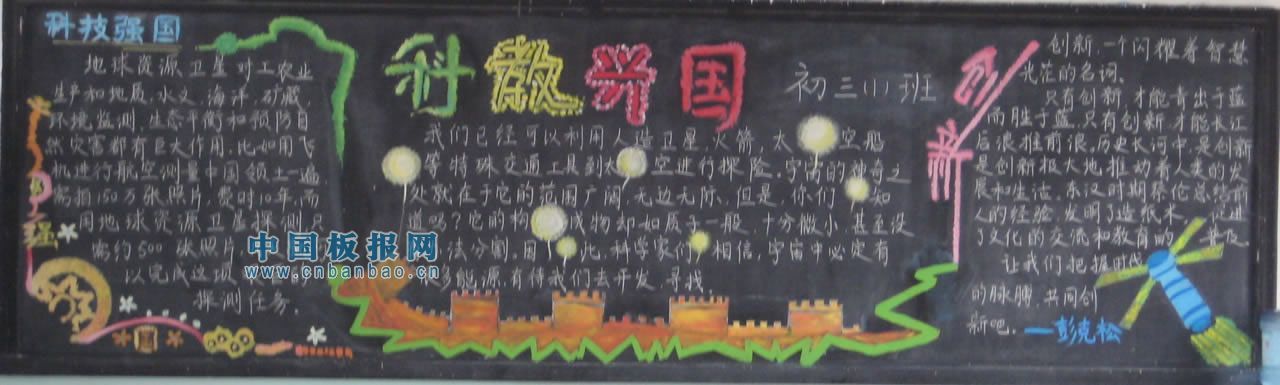 科技强国
地球资源卫星对工农业
生产和地质、水文、海洋、矿藏、
环境监测、生态平衡和预防自
然灾害都有巨大作用。比如用飞
机进行航空测量中国领土一遍
需拍150万张照片,费时10年,而
用地球资源卫星探测只
需约500张照片
以完成这项
探测任务。
强
科教兴国
初三(1)班
我们已经可以利用人造卫星,火箭,太空船
等特殊交通工具到太空进行探险。宇宙的神奇之
处就在于它的范围广阔,无边无际,但是,你们知
道吗?它的构成物却如质子一般,十分微小,甚至没
法分割,因此,科学家们相信,宇宙中必定有
很多能源,有待我们去开发,寻找。
创新
创新,一个闪耀着智慧
光茫的名词。
只有创新,才能青出于蓝
而胜于蓝,只有创新才能长江
后浪推前浪,历史长河中,是创新
是创新极大地推动着人类的发
展和生活。东汉时期蔡伦总结前
人的经验,发明了造纸术,促进
了文化的交流和教育的普及。
让我们把握时代
的脉膊,共同创
新吧。
—彭克松
中国板报网
www.cnbanbao.cn